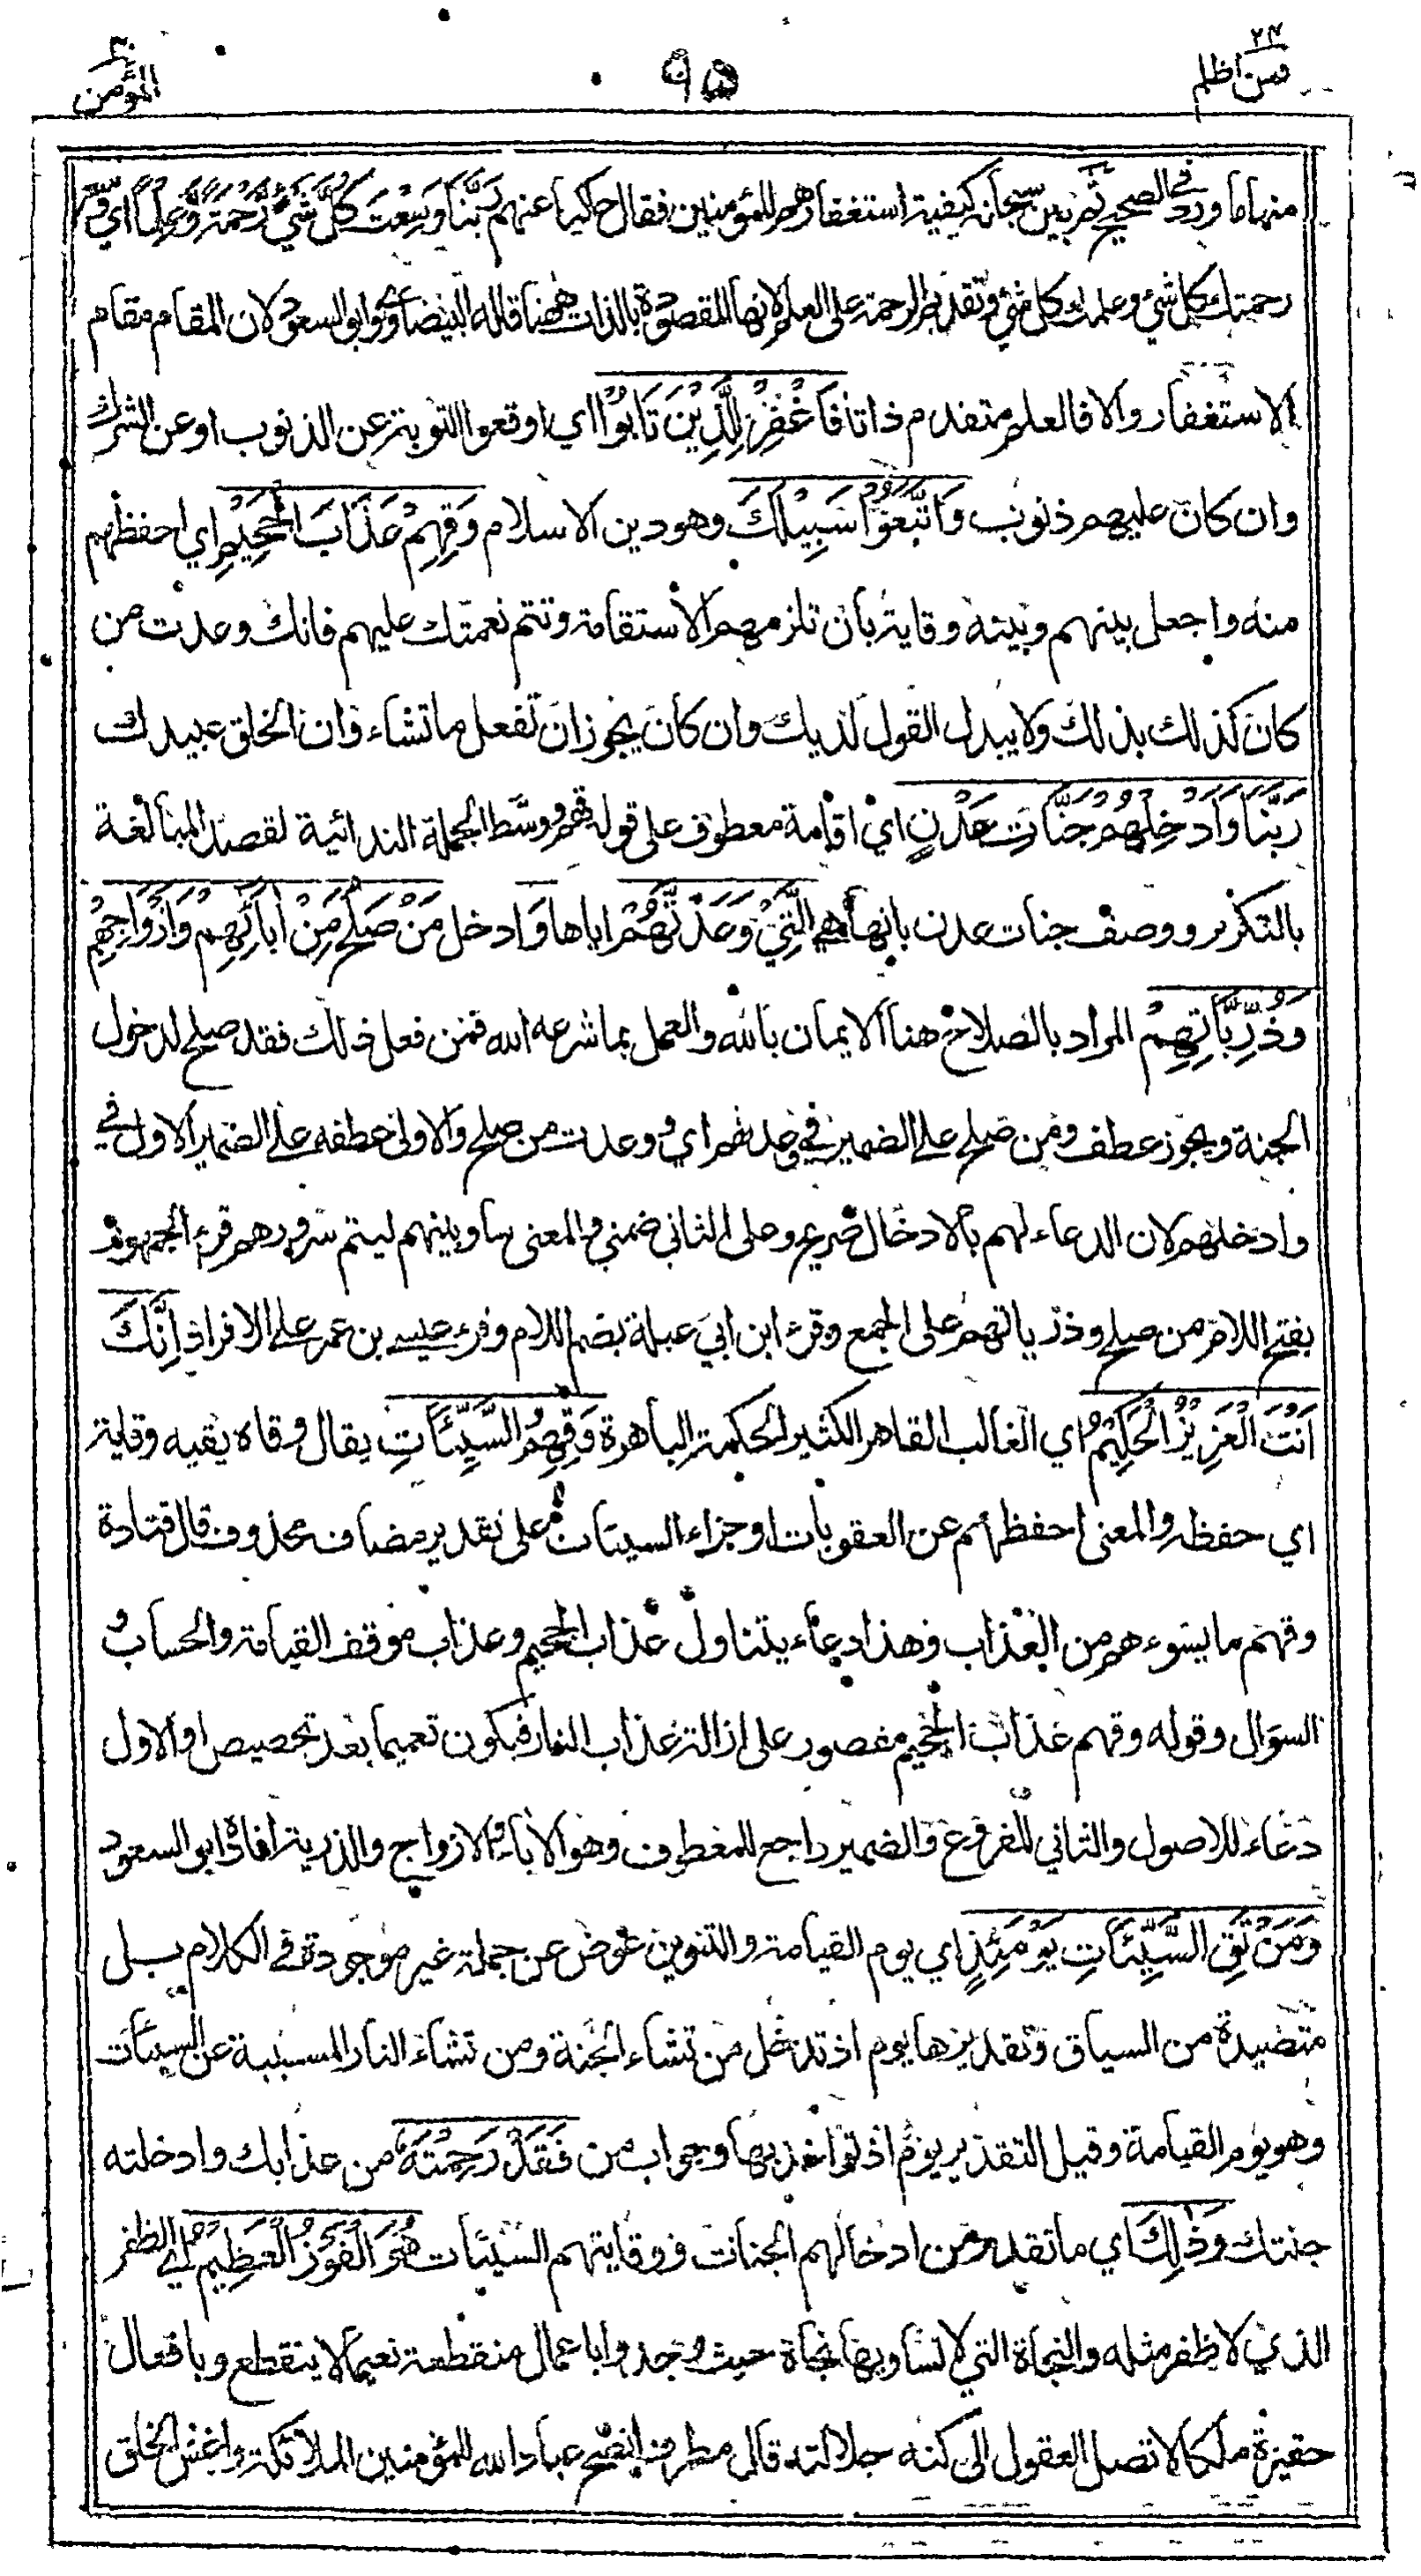 فمن اظلم ٢٤
٩٥
المؤمن ٤٠
منها ما ورد في الصحيح ثم بين سبحانه كيفية استغفارهم للمؤمنين فقال حاكيا عنهم رَبَّنَا وَسِعْتَ كُلَّ شَيْءٍ رَّحْمَةً وَّعِلْمًا اي
رحمتك كل شيء وعلمك كل شيء وتقديم الرحمة على العلم لانها المقصودة بالذات ههنا قاله البيضاوي وابو السعود لان المقام مقام
الاستغفار والا فالعلم متقدم ذاتا فَاغْفِرْ لِلَّذِيْنَ تَابُوْا اي اوقعوا التوبة عن الذنوب او عن الشرك
وان كان عليهم ذنوب وَاتَّبَعُوْا سَبِيْلَكَ وهو دين الاسلام وَقِهِمْ عَذَابَ الْجَحِيْمِ اي احفظهم
منه واجعل بينهم وبينه وقاية بان تلزمهم الاستقامة وتتم نعمتك عليهم فانك وعدت من
كان كذلك بذلك ولا يبدل القول لديك وان كان يجوز ان تفعل ما تشاء وان الخلق عبيدك
رَبَّنَا وَاَدْخِلْهُمْ جَنَّاتِ عَدْنٍ اي اقامة معطوف على قوله قهم ووسّط الجملة الندائية لقصد المبالغة
بالتكرير ووصف جنات عدن بانها هي الَّتِيْ وَعَدْتَّهُمْ اياها وَ ادخل مَنْ صَلَحَ مِنْ اٰبَائِهِمْ وَاَزْوَاجِهِمْ
وَذُرِّيَّاتِهِمْ المراد بالصلاح هنا الايمان بالله والعمل بما شرعه الله فمن فعل ذلك فقد صلح لدخول
الجنة ويجوز عطف ومن صلح على الضمير في وعدتهم اي ووعدت من صلح والاولى عطفه على الضمير الاول في
وادخلهم لان الدعاء لهم بالادخال صريح وعلى الثاني ضمني والمعنى ساو بينهم ليتم سرورهم قرء الجمهور
بفتح اللام من صلح وذرياتهم على الجمع وقرء ابن ابي عبلة بضم اللام وقرء عيسى بن عمر على الافراد اِنَّكَ
اَنْتَ الْعَزِيْزُ الْحَكِيْمُ اي الغالب القاهر الكثير الحكمة الباهرة وَقِهِمُ السَّيِّئَاتِ يقال وقاه يقيه وقاية
اي حفظه والمعنى احفظهم عن العقوبات او جزاء السيئات على تقدير مضاف محذوف قال قتادة
وقهم ما يسوءهم من العذاب وهذا دعاء يتناول عذاب الجحيم وعذاب موقف القيامة والحساب و
السؤال وقوله وقهم عذاب الجحيم مقصور على ازالة عذاب النار فيكون تعميما بعد تخصيص او الاول
دعاء للاصول والثاني للفروع والضمير راجع للمعطوف وهو الآباء والازواج والذرية افاده ابو السعود
وَمَنْ تَقِ السَّيِّئَاتِ يَوْمَئِذٍ اي يوم القيامة والتنوين عوض عن جملة غير موجودة في الكلام بل
متصيدة من السياق وتقديرها يوم اذ تدخل من تشاء الجنة ومن تشاء النار المسببة عن السيئات
وهو يوم القيامة وقيل التقدير يوم اذ تؤاخذ بها وجواب من فَقَدْ رَحِمْتَهٗ من عذابك وادخلته
جنتك وَذٰلِكَ اي ما تقدم من ادخالهم الجنات ووقايتهم السيئات هُوَ الْفَوْزُ الْعَظِيْمُ اي الظفر
الذي لا ظفر مثله والنجاة التي لا تساويها نجاة حيث وجدوا باعمال منقطعة نعيما لا ينقطع وبافعال
حقيرة ملكا لا تصل العقول الى كنه جلالته قال مطرف انصح عباد الله للمؤمنين الملائكة واغش الخلق